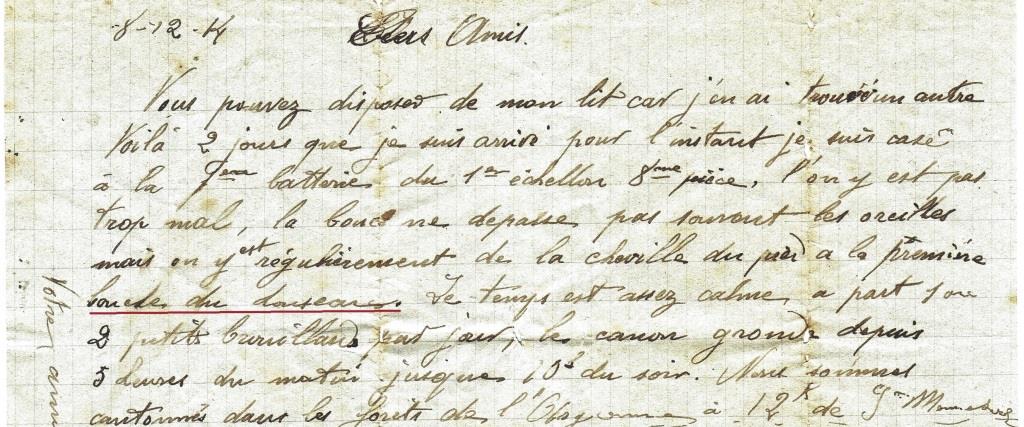 8-12-14 Chers Amis.
Vous pouvez disposer de mon lit car j'en ai trouvé un autre
Voilà 2 jours que je suis arrivé pour l'instant je suis casé
à la batterie du 1er échellon 8ème pièce, l'on y est pas
trop mal, la boue ne depasse pas souvant les oreilles
mais on y est régulièrement de la cheville du pied a la première
boucle du Le temps est assez calme, a part 1 ou
2 petits par jour, le canon gronde depuis
5 heures du matin jusque 10h du soir. Nous sommes
cantonnés dans les forets de l'Argonne à 12k de Ste
Votre